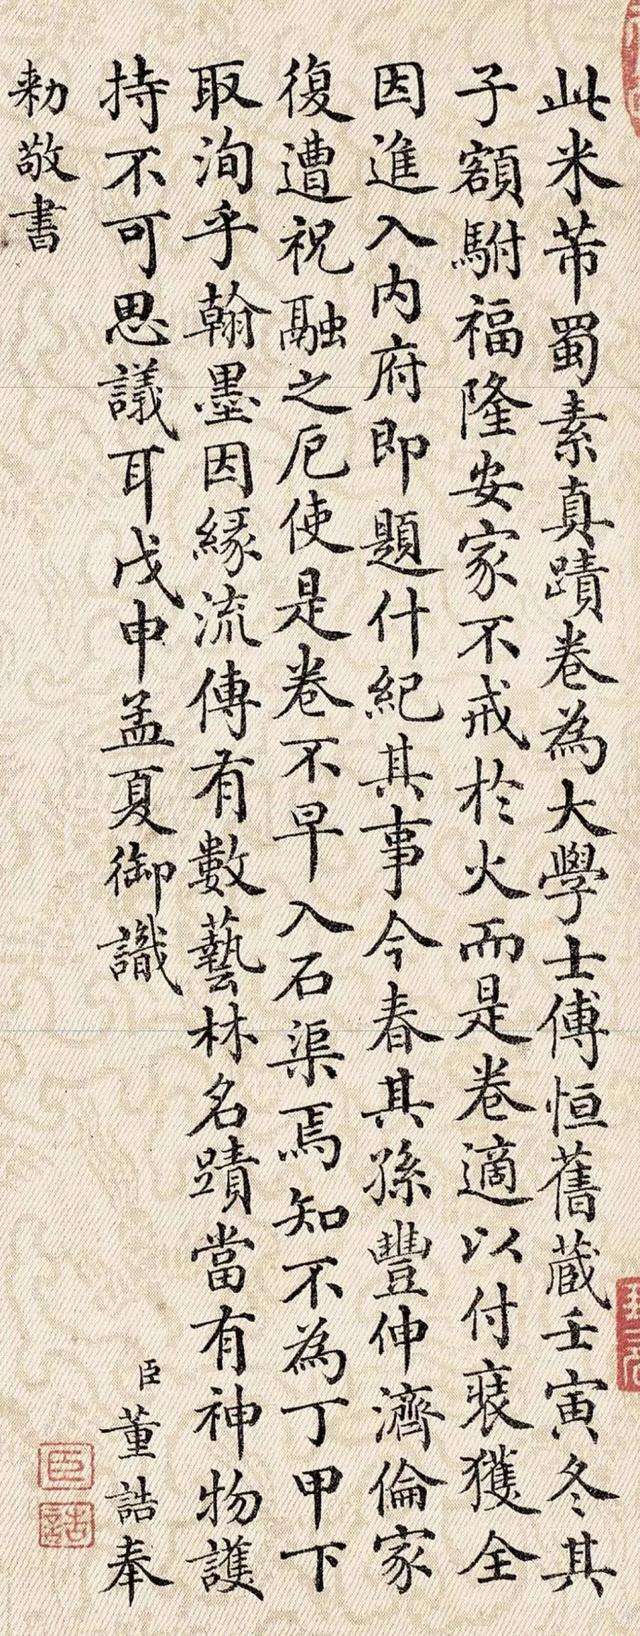 此米芾蜀素真蹟卷為大學士傅恒舊蔵壬寅冬其
子額駙福隆安家不戒於火而是卷適以付裝獲全
因進入內府即題什紀其事今春其孫豐伸濟倫家
復遭祝融之厄使是卷不早入石渠焉知不為丁甲下
取洵乎翰墨因緣流傳有數藝林名蹟當有神物護
持不可思議耳戊申孟夏御識
臣董誥奉
勑敬書
臣
誥